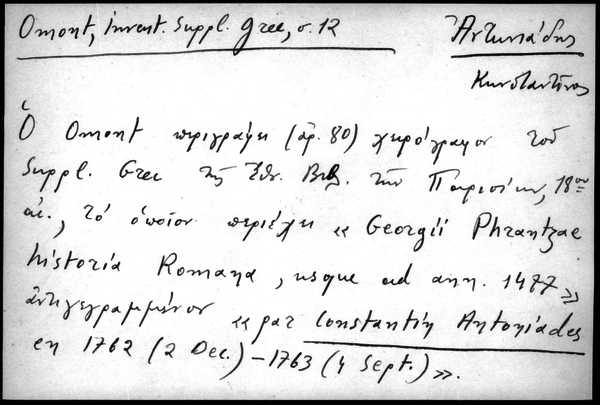 Omont, Invent. Suppl. Grec, σ. 12
Ἀντωνιάδης
Κωνσταντῖνος
Ὁ Omont περιγράφει (ἀρ. 80) χειρόγραφον τοῦ
Suppl. Grec τῆς Ἐθν. Βιβ. τῶν Παρισίων, 18ου
αἰ., τὸ ὁποῖον περιέχει « Georgii Phrantzae
historia Romana, usque ad ann. 1477 »
ἀντιγεγραμμένον « par Constantin Antoniades
en 1762 (2 Dec.) – 1763 (4 Sept.) ».